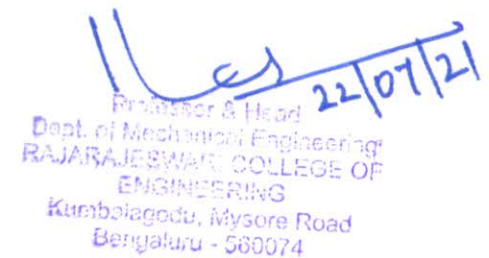 22/07/21
Professor & Head
Dept. of Mechanical Engineering
RAJARAJESWARI COLLEGE OF
ENGINEERING
Kumbalagodu, Mysore Road
Bengaluru - 560074